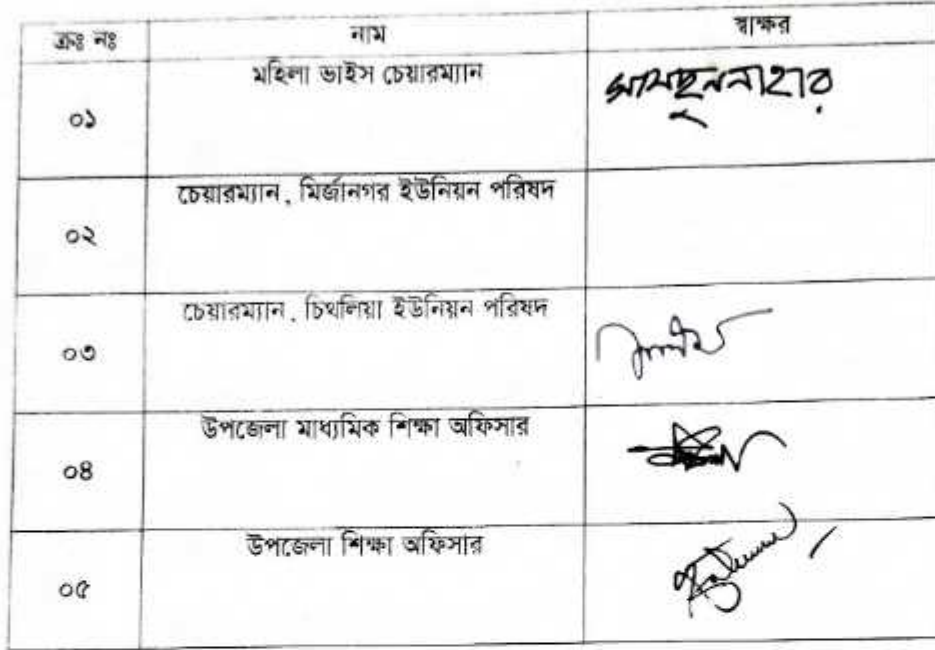 ক্রঃ নঃ নাম স্বাক্ষর
মহিলা ভাইস চেয়ারম্যান
০১ সামছুননাহার
চেয়ারম্যান, মির্জানগর ইউনিয়ন পরিষদ
০২
চেয়ারম্যান, চিথলিয়া ইউনিয়ন পরিষদ
০৩
উপজেলা মাধ্যমিক শিক্ষা অফিসার
০৪
উপজেলা শিক্ষা অফিসার
০৫